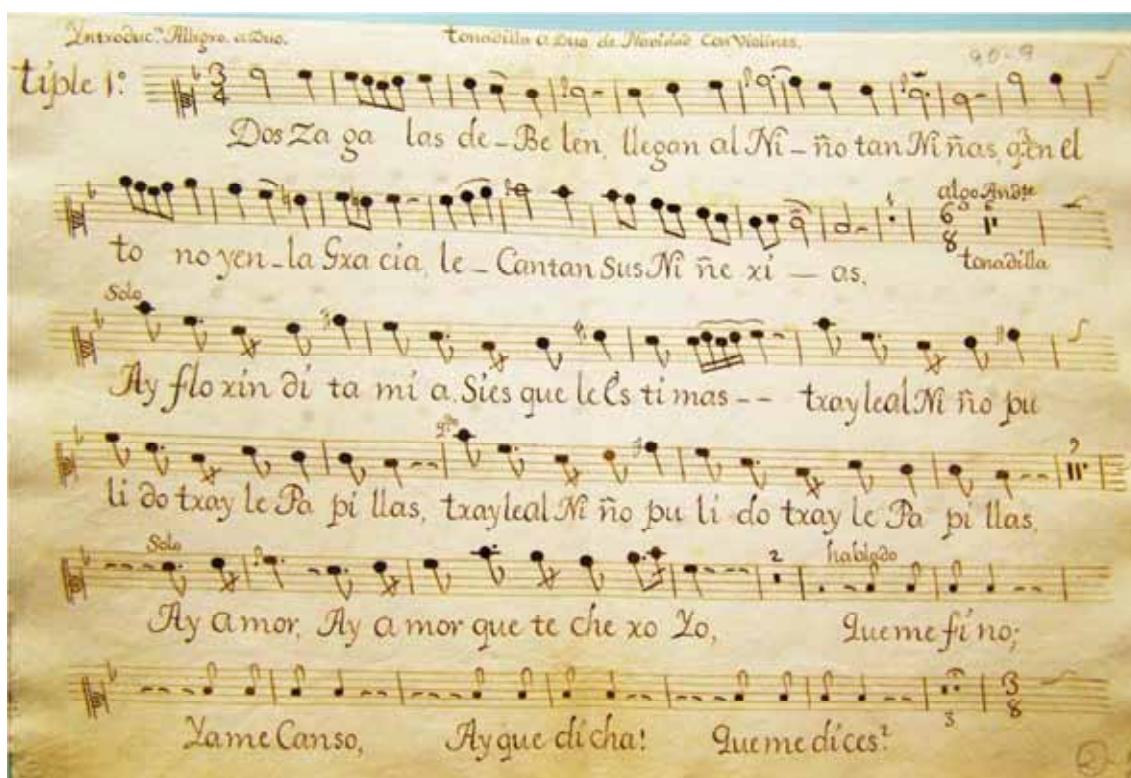 Yntroduc.n Allegro. a Duo. tonadilla a Duo de Navidad Con Violines.
90-9
tiple 1º
Dos Za ga las de-Be len, llegan al Ni-ño tan Niñas, q.en el
algo Andte
to no yen-la Gracia, le-Cantan Sus Ni ñe ri - as.
tonadilla
Solo
Ay florin di ta mi a. Sies que le Es ti mas -- traylealNi ño pu
li do tray le Pa pi llas, traylealNi ño pu li do tray le Pa pi llas,
Solo hablado
Ay amor, Ay amor que te che ro Yo, Quemefino;
YameCanso, Ayque dicha! Quemedices?